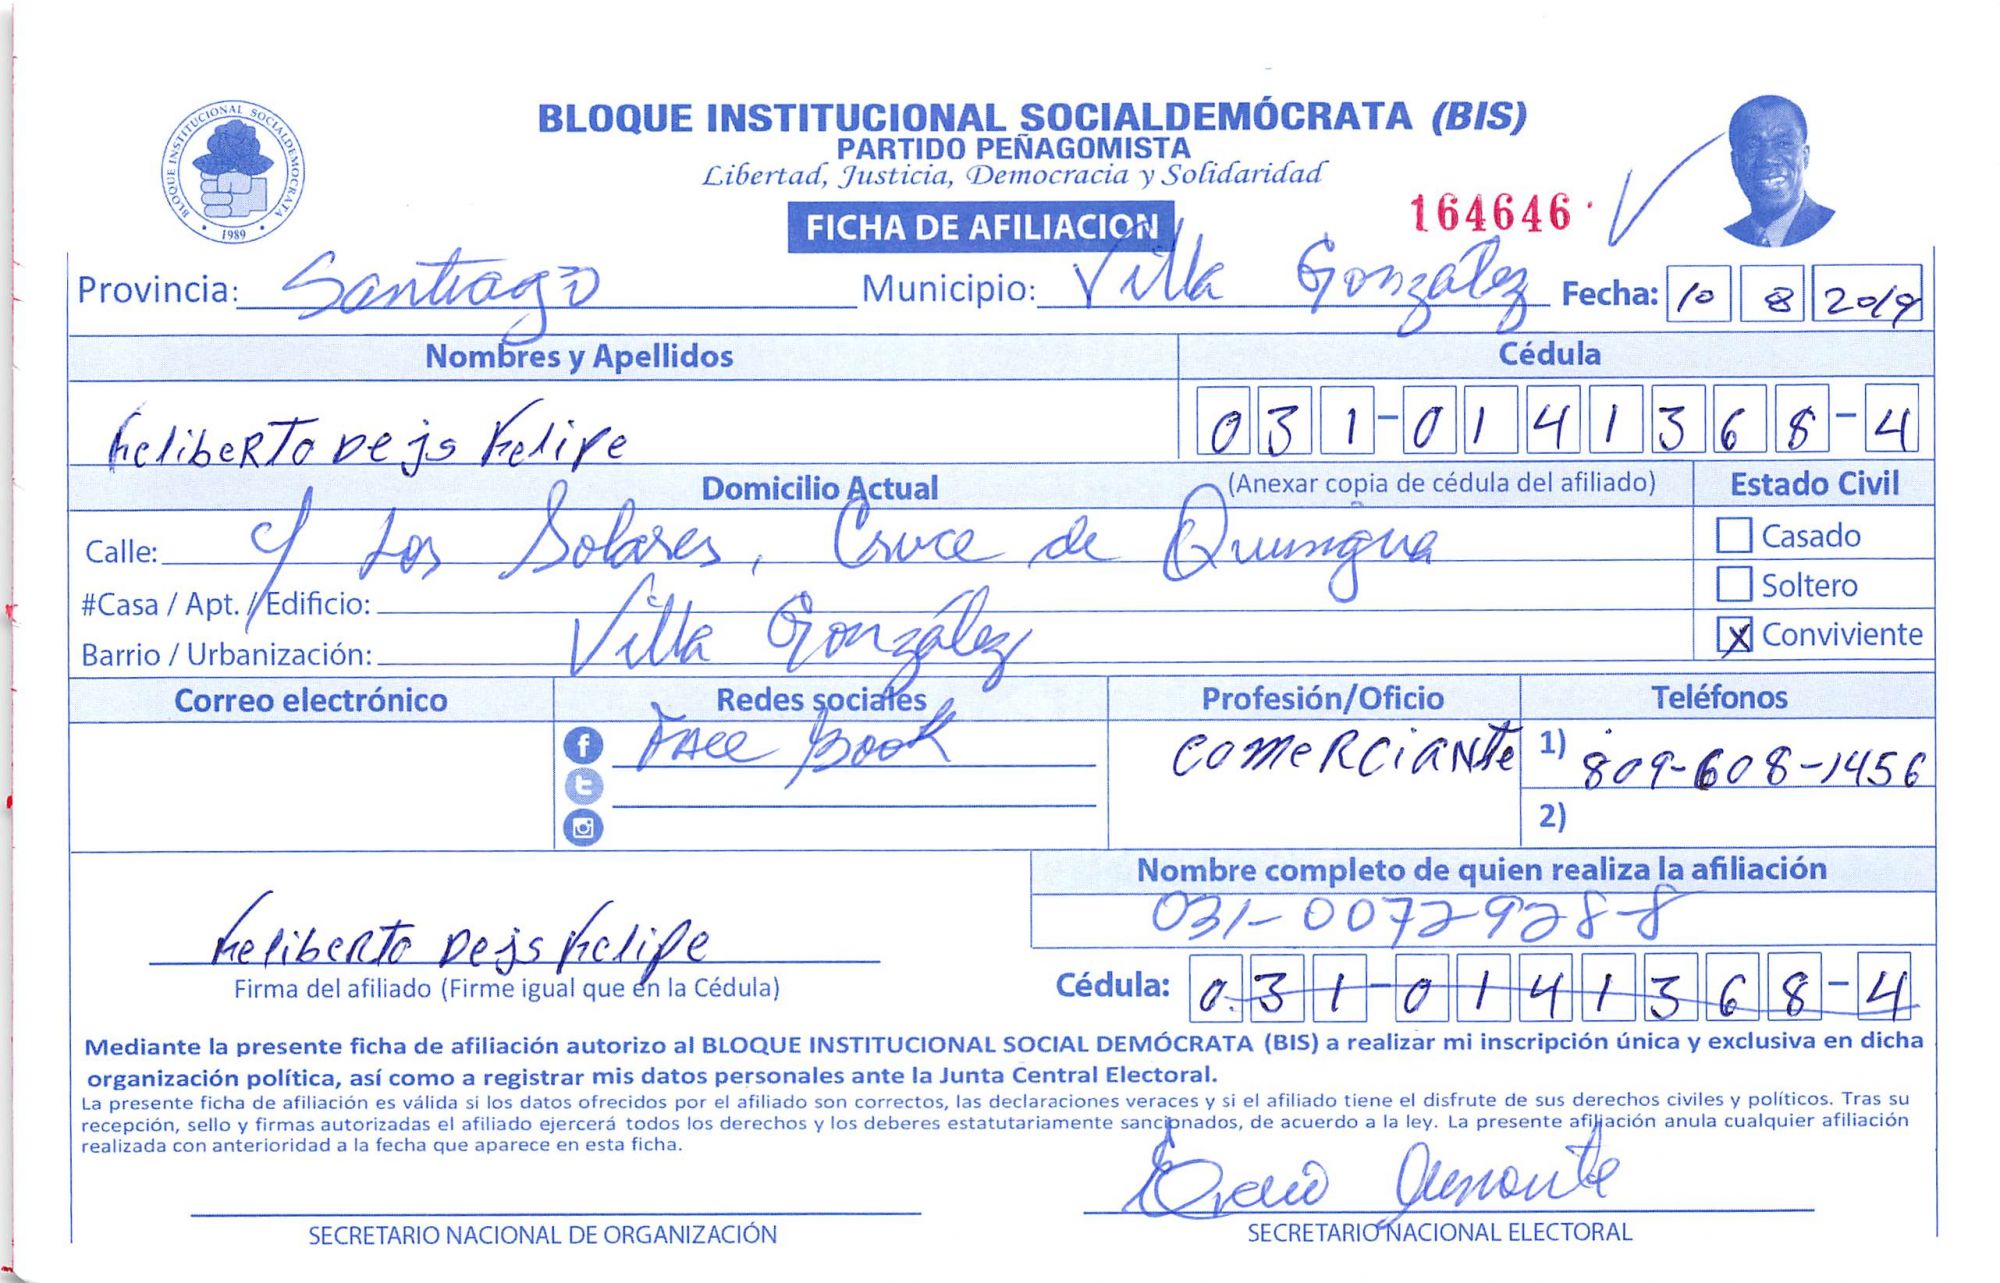 BLOQUE INSTITUCIONAL SOCIALDEMÓCRATA (BIS)
PARTIDO PEÑAGOMISTA
Libertad, Justicia, Democracia y Solidaridad
BLOQUE INSTITUCIONAL SOCIALDEMOCRATA
1989
164646
FICHA DE AFILIACION
Provincia: Santiago Municipio: Villa González Fecha: 10 8 2019
Nombres y Apellidos Cédula
Feliberto De js Felipe 031-0141368-4
Domicilio Actual (Anexar copia de cédula del afiliado) Estado Civil
Calle: c/ Los Solares, Cruce de Quinigua Casado
#Casa / Apt. / Edificio: Soltero
Barrio / Urbanización: Villa González X Conviviente
Correo electrónico Redes sociales Profesión/Oficio Teléfonos
Face Book COMERCIANTE 1) 809-608-1456
2)
Nombre completo de quien realiza la afiliación
031-0072928-8
Feliberto De js Felipe
Firma del afiliado (Firme igual que en la Cédula) Cédula: 031-0141368-4
Mediante la presente ficha de afiliación autorizo al BLOQUE INSTITUCIONAL SOCIAL DEMÓCRATA (BIS) a realizar mi inscripción única y exclusiva en dicha
organización política, así como a registrar mis datos personales ante la Junta Central Electoral.
La presente ficha de afiliación es válida si los datos ofrecidos por el afiliado son correctos, las declaraciones veraces y si el afiliado tiene el disfrute de sus derechos civiles y políticos. Tras su
recepción, sello y firmas autorizadas el afiliado ejercerá todos los derechos y los deberes estatutariamente sancionados, de acuerdo a la ley. La presente afiliación anula cualquier afiliación
realizada con anterioridad a la fecha que aparece en esta ficha.
SECRETARIO NACIONAL DE ORGANIZACIÓN SECRETARIO NACIONAL ELECTORAL